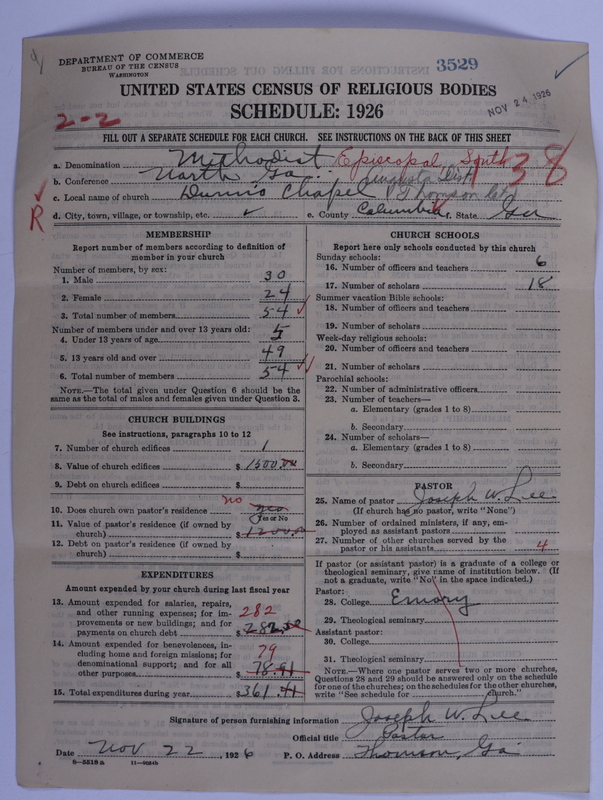 DEPARTMENT OF COMMERCE
BUREAU OF THE CENSUS
WASHINGTON
3529
UNITED STATES CENSUS OF RELIGIOUS BODIES
SCHEDULE: 1926
NOV 24 1926
2-2
FILL OUT A SEPARATE SCHEDULE FOR EACH CHURCH. SEE INSTRUCTIONS ON THE BACK OF THIS SHEET
a. Denomination Methodist Episcopal, South
38
b. Conference North Ga. Augusta Dist
c. Local name of church Chapel (Thomson
R
d. City, town, village, or township, etc. ✓ e. County Columbia f. State Ga
MEMBERSHIP
Report number of members according to definition of
member in your church
Number of members, by sex:
1. Male 30
2. Female 24
3. Total number of members 54
Number of members under and over 13 years old:
4. Under 13 years of age 5
5. 13 years old and over 49
6. Total number of members 54
NOTE.—The total given under Question 6 should be the
same as the total of males and females given under Question 3.
CHURCH BUILDINGS
See instructions, paragraphs 10 to 12
7. Number of church edifices 1
8. Value of church edifices $ 1500.00
9. Debt on church edifices $
no
10. Does church own pastor's residence yes
(Yes or No)
11. Value of pastor's residence (if owned by
church) $ 1200.00
12. Debt on pastor's residence (if owned by
church) $
EXPENDITURES
Amount expended by your church during last fiscal year
13. Amount expended for salaries, repairs,
and other running expenses; for im-
provements or new buildings; and for
payments on church debt $ 282.50
282
14. Amount expended for benevolences, in-
cluding home and foreign missions; for
denominational support; and for all
other purposes $ 78.91
79
15. Total expenditures during year $ 361.41
CHURCH SCHOOLS
Report here only schools conducted by this church
Sunday schools:
16. Number of officers and teachers 6
17. Number of scholars 18
Summer vacation Bible schools:
18. Number of officers and teachers
19. Number of scholars
Week-day religious schools:
20. Number of officers and teachers
21. Number of scholars
Parochial schools:
22. Number of administrative officers
23. Number of teachers—
a. Elementary (grades 1 to 8)
b. Secondary
24. Number of scholars—
a. Elementary (grades 1 to 8)
b. Secondary
PASTOR
25. Name of pastor Joseph W. Lee
(If church has no pastor, write "None")
26. Number of ordained ministers, if any, em-
ployed as assistant pastors
27. Number of other churches served by the
pastor or his assistants 4
If pastor (or assistant pastor) is a graduate of a college or
theological seminary, give name of institution below. (If
not a graduate, write "No" in the space indicated.)
Pastor:
28. College Emory
29. Theological seminary
Assistant pastor:
30. College
31. Theological seminary
NOTE.—Where one pastor serves two or more churches,
Questions 28 and 29 should be answered only on the schedule
for one of the churches; on the schedules for the other churches,
write "See schedule for church."
Signature of person furnishing information Joseph W. Lee
Official title Pastor
Date Nov 22, 1926 P. O. Address Thomson, Ga.